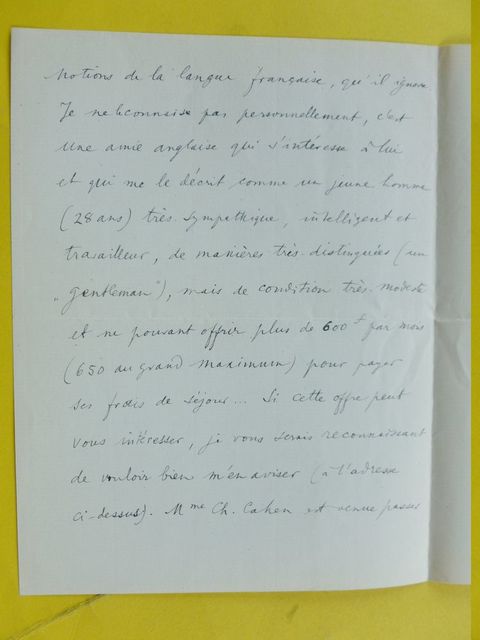 notions de la langue française, qu'il ignore.
Je ne le connais pas personnellement, c'est
une amie anglaise qui s'intéresse à lui
et qui me le décrit comme un jeune homme
(28 ans) très sympathique, intelligent et
travailleur, de manières très distinguées (un
„gentleman"), mais de condition très modeste
et ne pouvant offrir plus de 600 f par mois
(650 au grand maximum) pour payer
ses frais de séjour... Si cette offre peut
vous intéresser, je vous serais reconnaissant
de vouloir bien m'en aviser (à l'adresse
ci-dessus). Mme Ch. Cahen est venue passer